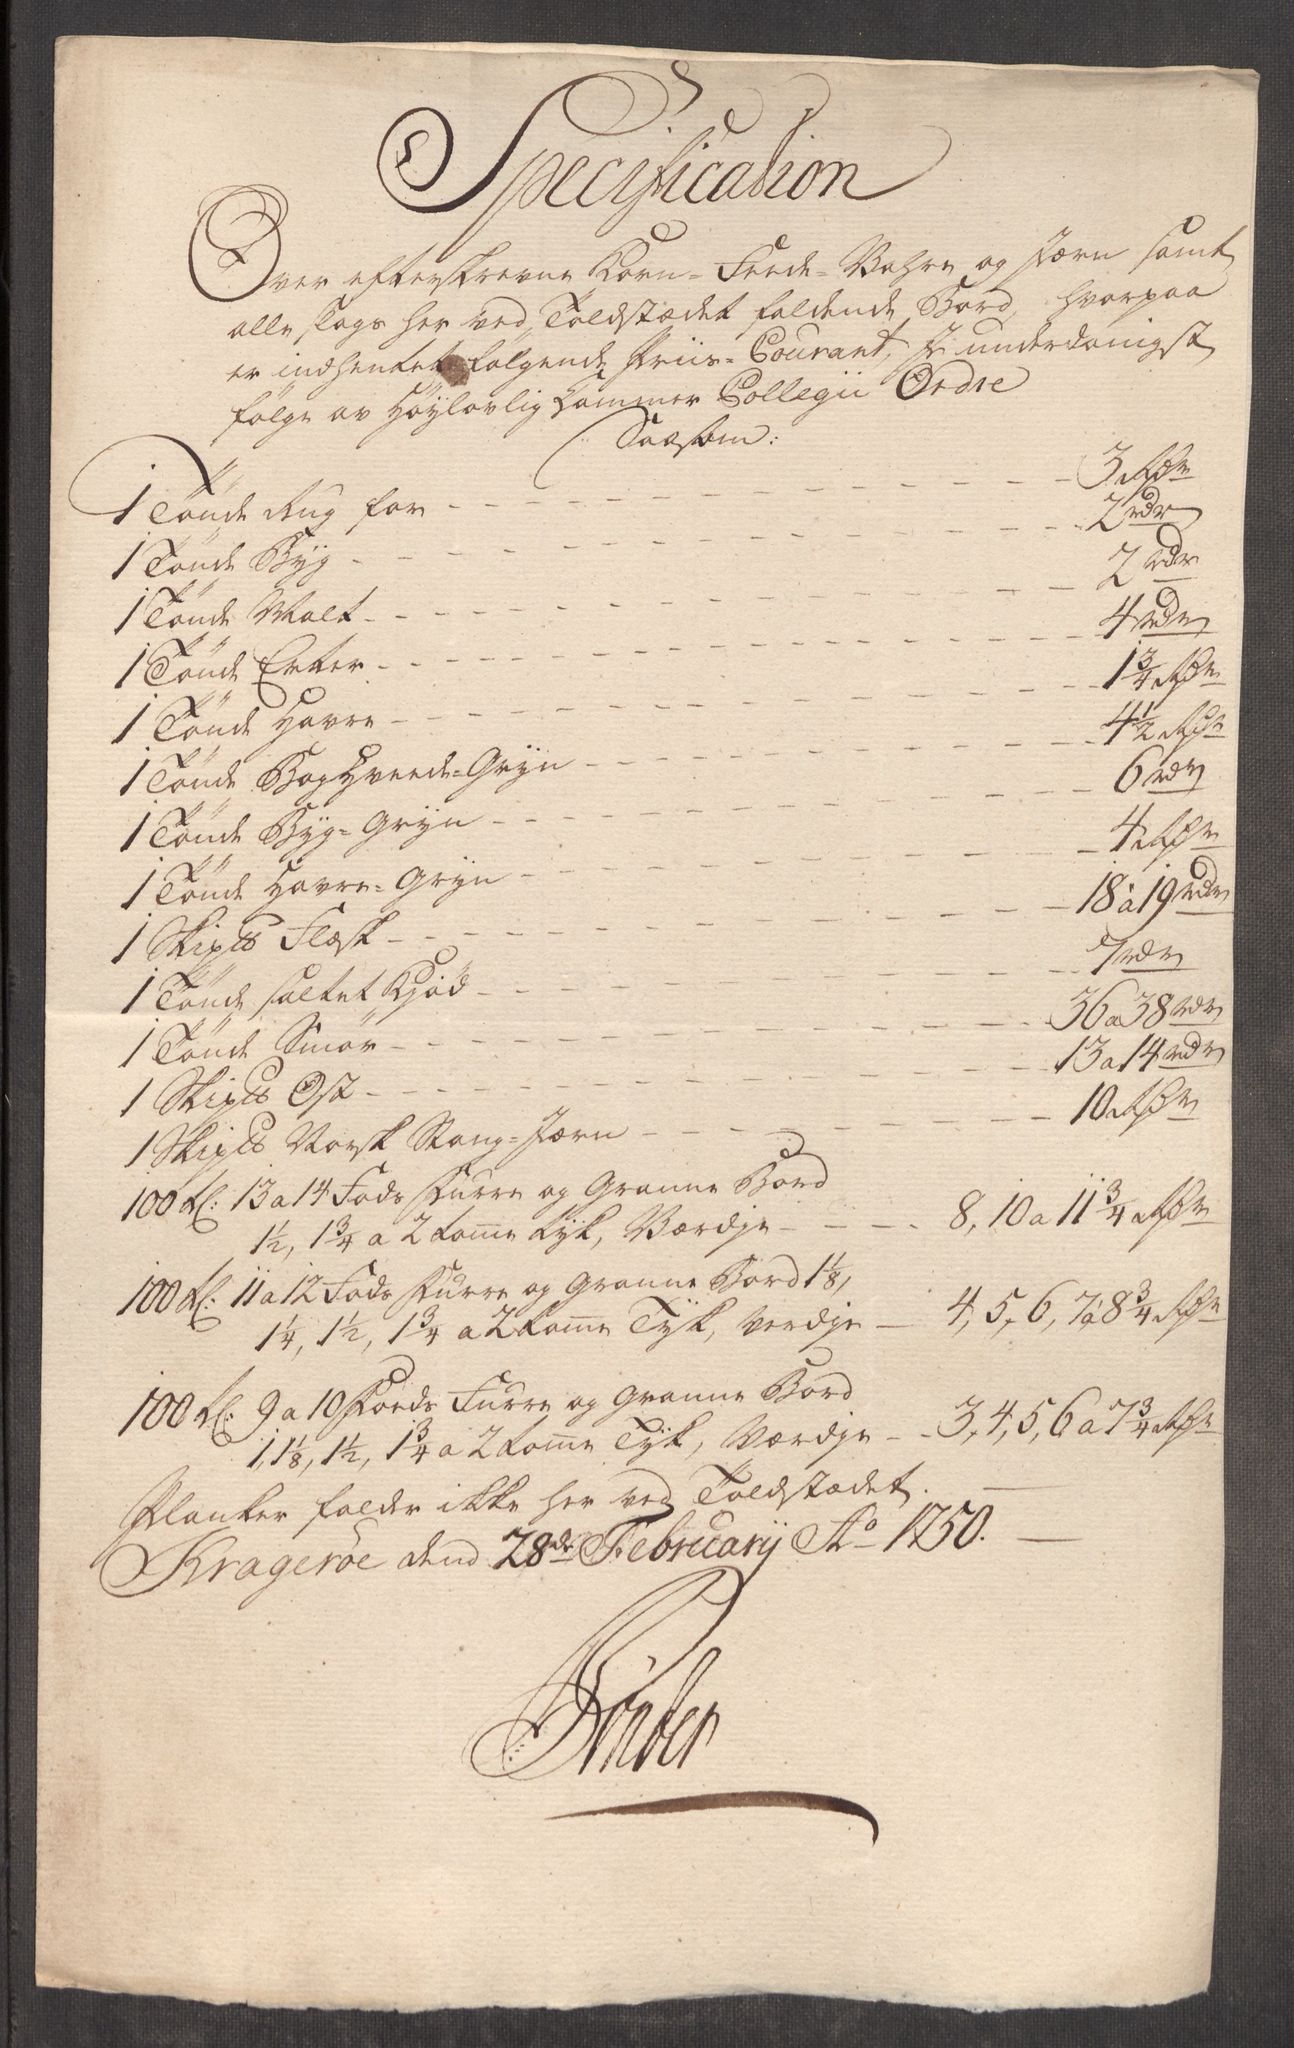 Specification
Over efterskrevne Korn- Feede- Vahre og Jærn samt
alle slags her ved Toldstædet faldende Bord, hvorpaa
er indhentet følgende Priis-Courant, I underdanigst
følge av Høylovlig Cammer Collegii Ordre
Saasom:
1 Tønde Rug for - - - 3 Rdr
1 Tønde Byg - - - 2 rdr
1 Tønde Malt - - - 2 rdr
1 Tønde Erter - - - 4 rdr
1 Tønde Havre - - - 1 3/4 Rdr
1 Tønde Boghveede-Gryn - - - 4 1/2 Rdr
1 Tønde Byg-Gryn - - - 6 rdr
1 Tønde Havre-Gryn - - - 4 Rdr
1 Skip℔ Flæsk - - - 18 a 19 rdr
1 Tønde saltet Kjød - - - 7 rdr
1 Tønde Smør - - - 36 a 38 rdr
1 Skip℔ Ost - - - 13 a 14 rdr
1 Skip℔ Norsk Stang-Jærn - - - 10 Rdr
100 st: 13 a 14 Fods Furre og Granne Bord
1 1/2, 1 3/4 a 2 tomme tyk, Værdje - - - 8, 10 a 11 3/4 Rdr
100 st: 11 a 12 Fods Furre og Granne Bord 1 1/8,
1 1/4, 1 1/2, 1 3/4 a 2 tomme Tyk, Verdje - 4, 5, 6, 7 a 8 3/4 Rdr
100 st: 9 a 10 Foeds Furre og Granne Bord
1, 1 1/8, 1 1/2, 1 3/4 a 2 tomme Tyk, Værdje - - 3, 4, 5, 6 a 7 3/4 Rdr
Planker falder ikke her ved Toldstædet.
Kragerøe dend 28de Februarij Ao 1750.